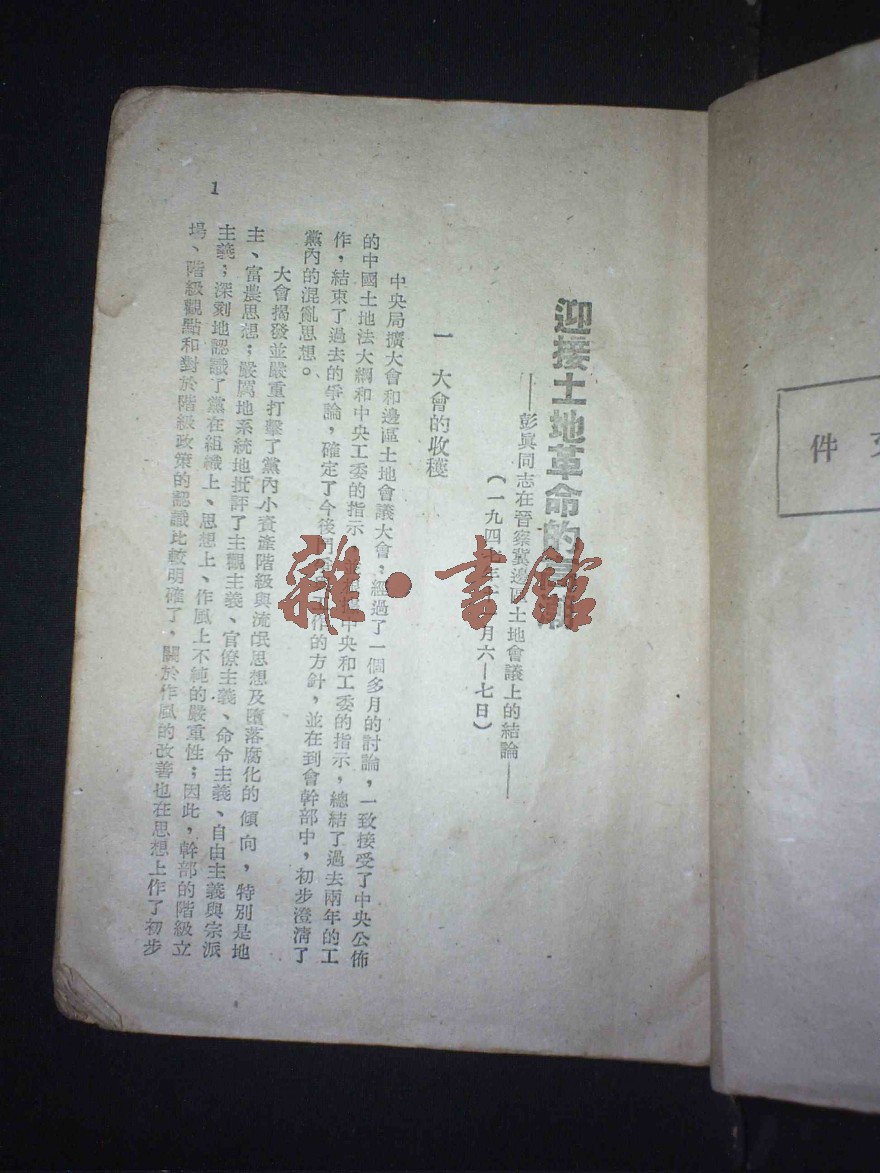 迎接土地革命的
——彭眞同志在晉察冀邊區土地會議上的結論——
(一九四 年 月六—七日)
一 大會的收穫
中央局擴大會和邊區土地會議大會，經過了一個多月的討論，一致接受了中央公佈
的中國土地法大綱和中央工委的指示 中央和工委的指示，總結了過去兩年的工
作，結束了過去的爭論，確定了今後 作的方針，並在到會幹部中，初步澄清了
黨內的混亂思想。
大會揭發並嚴重打擊了黨內小資產階級與流氓思想及墮落腐化的傾向，特別是地
主、富農思想；嚴厲地系統地批評了主觀主義、官僚主義、命令主義、自由主義與宗派
主義；深刻地認識了黨在組織上、思想上、作風上不純的嚴重性；因此，幹部的階級立
場、階級觀點和對於階級政策的認識比較明確了，關於作風的改善也在思想上作了初步
1
件
雜·書館